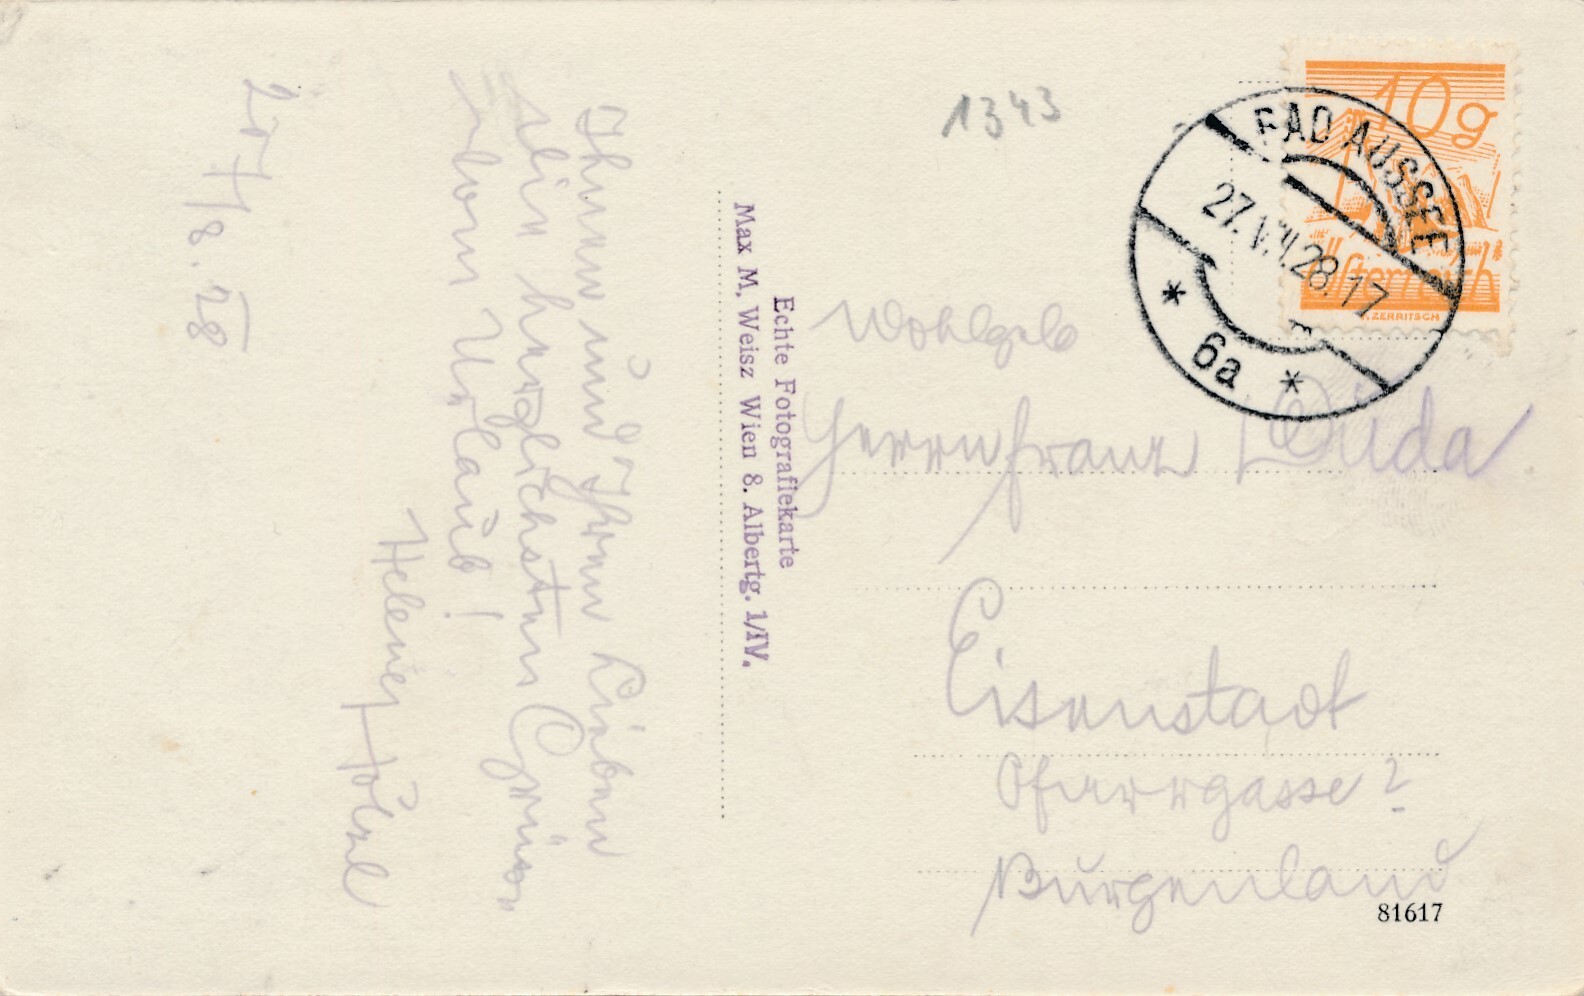 Ihnen und Ihren Lieben
die herzlichsten Grüsse
vom Urlaub!
Helene
27/8. 28
Echte Fotografiekarte
Max M. Weisz Wien 8. Albertg. 1/IV.
1343
10g
Österreich
ZERRITSCH
BAD AUSSEE
27.VIII.28.17
* 6a *
Wohlgeb
Herrn Franz Duda
Eisenstadt
Pfarrgasse 2
Burgenland
81617